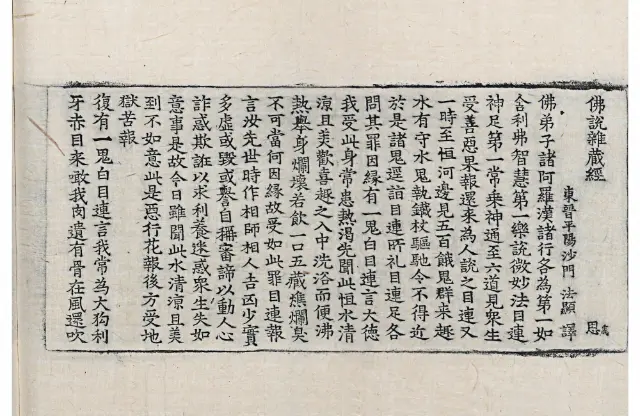 佛說雜藏經
恩
東晉平陽沙門 法顯 譯
佛弟子諸阿羅漢諸行各為第一如
舍利弗智慧第一樂說微妙法目連
神足第一常乗神通至六道見衆生
受善惡果報還来為人說之目連又
一時至恒河邊見五百餓鬼群来趣
水有守水鬼執鐵杖驅馳令不得近
於是諸鬼逕詣目連所礼目連足各
問其罪因縁有一鬼白目連言大徳
我受此身常患熱渇先聞此恒水清
涼且美歡喜趣之入中洗浴而便沸
熱舉身爛壞若飲一口五藏燋爛臭
不可當何因縁故受如此罪目連報
言汝先世時作相師相人吉凶少實
多虛或毀或譽自稱審諦以動人心
詐惑欺誑以求利養迷惑衆生失如
意事是故今日雖聞此水清涼且美
到不如意此是惡行花報後方受地
獄苦報
復有一鬼白目連言我常為大狗利
牙赤目来噉我肉遺有骨在風還吹